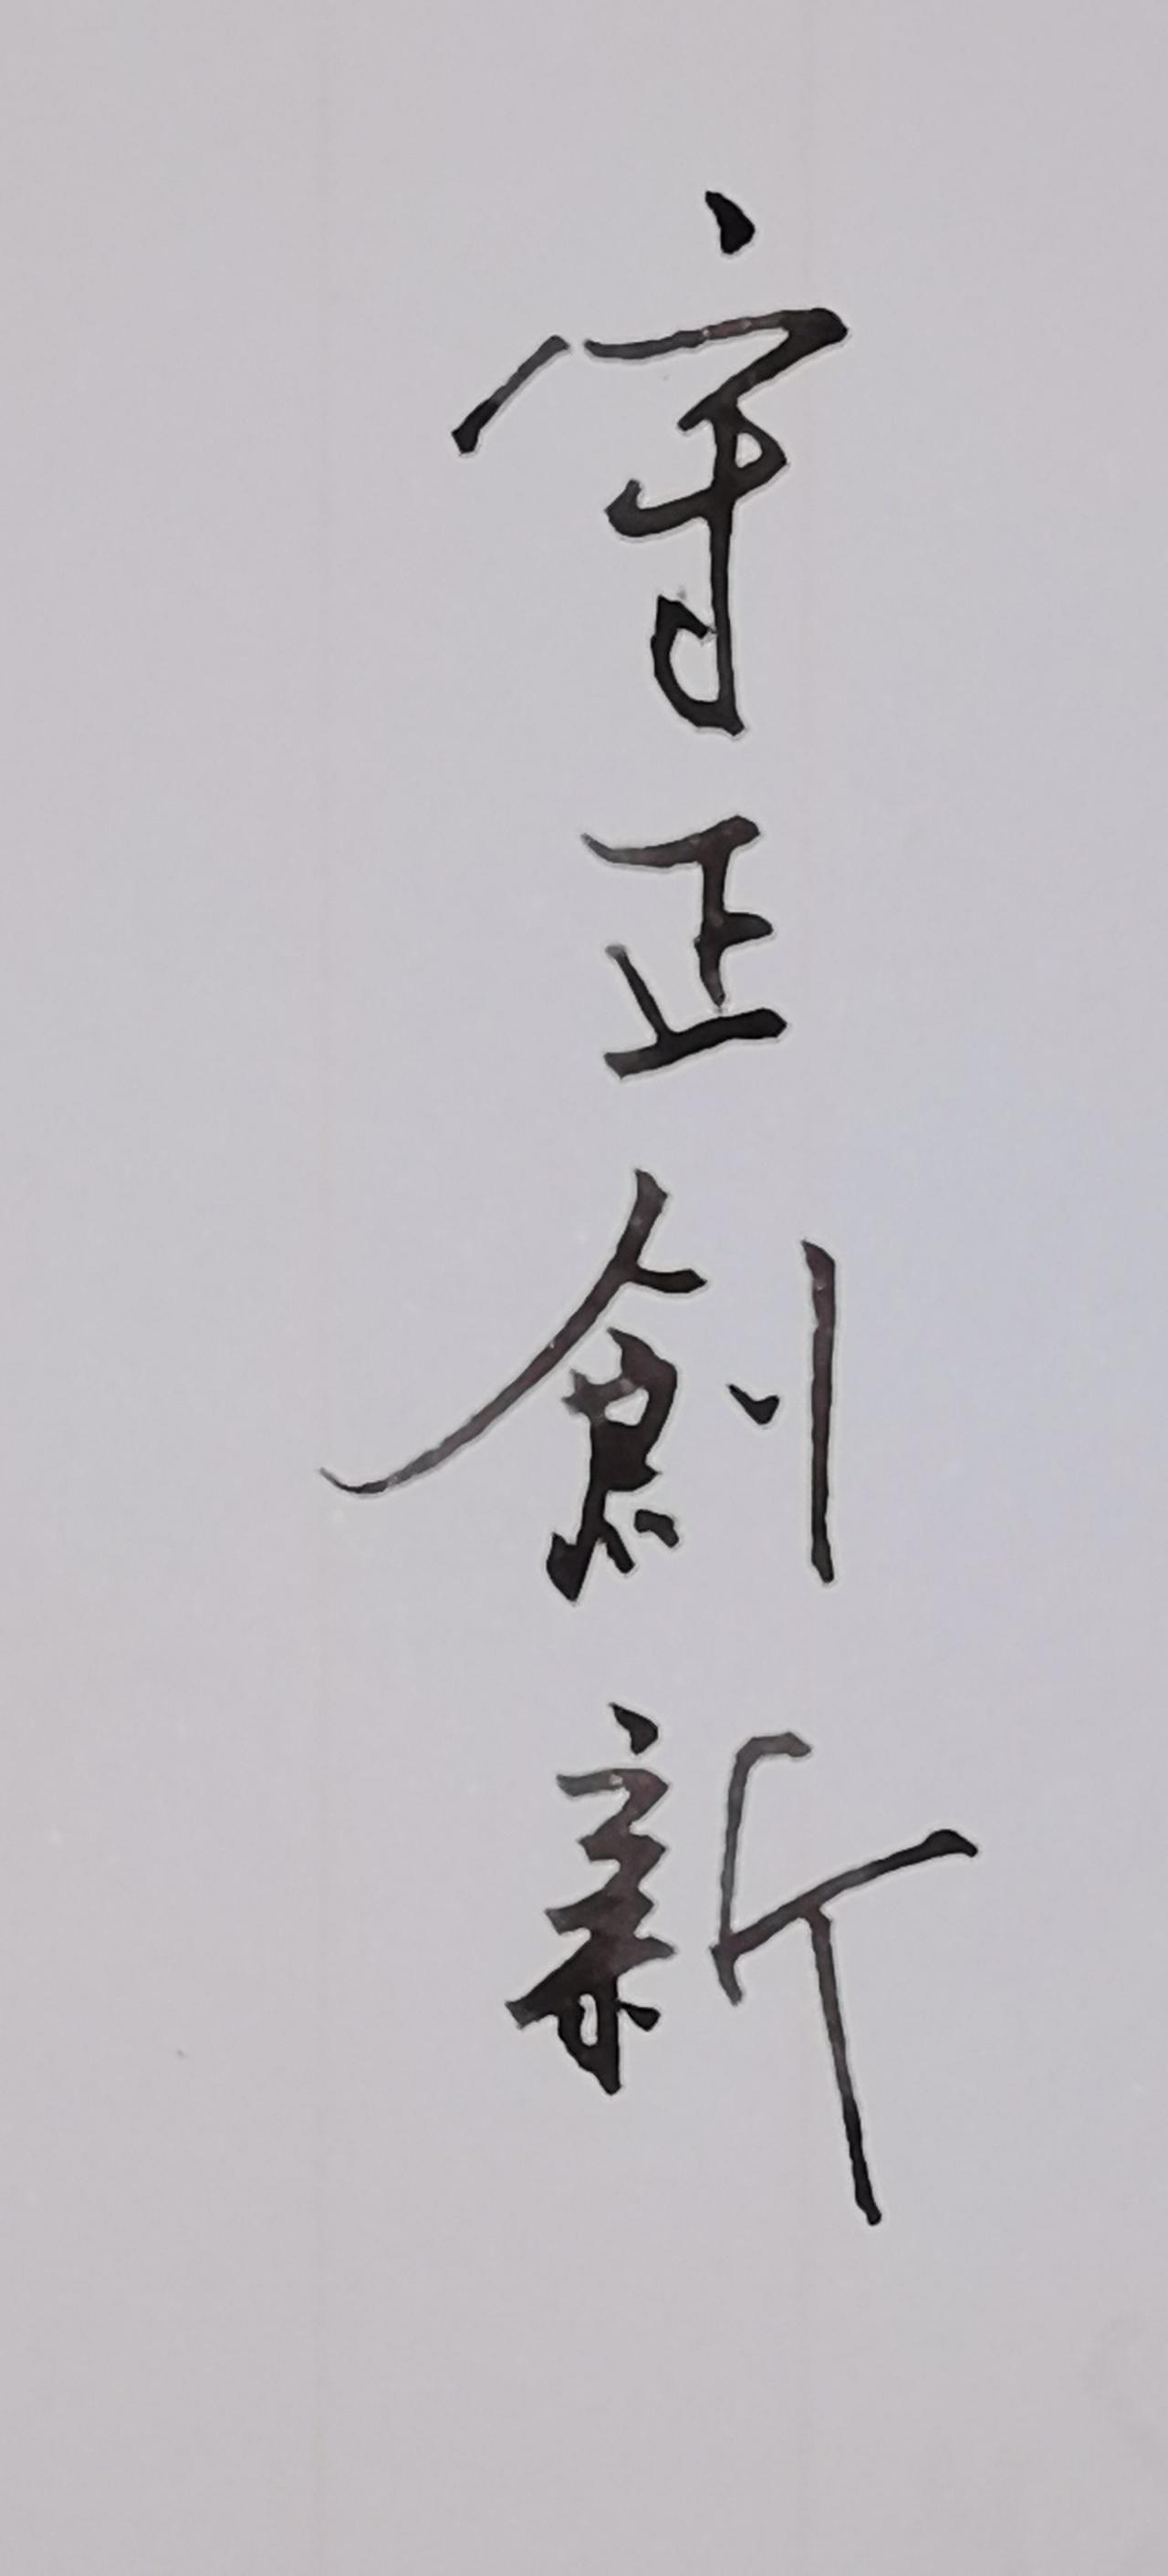 守正創新